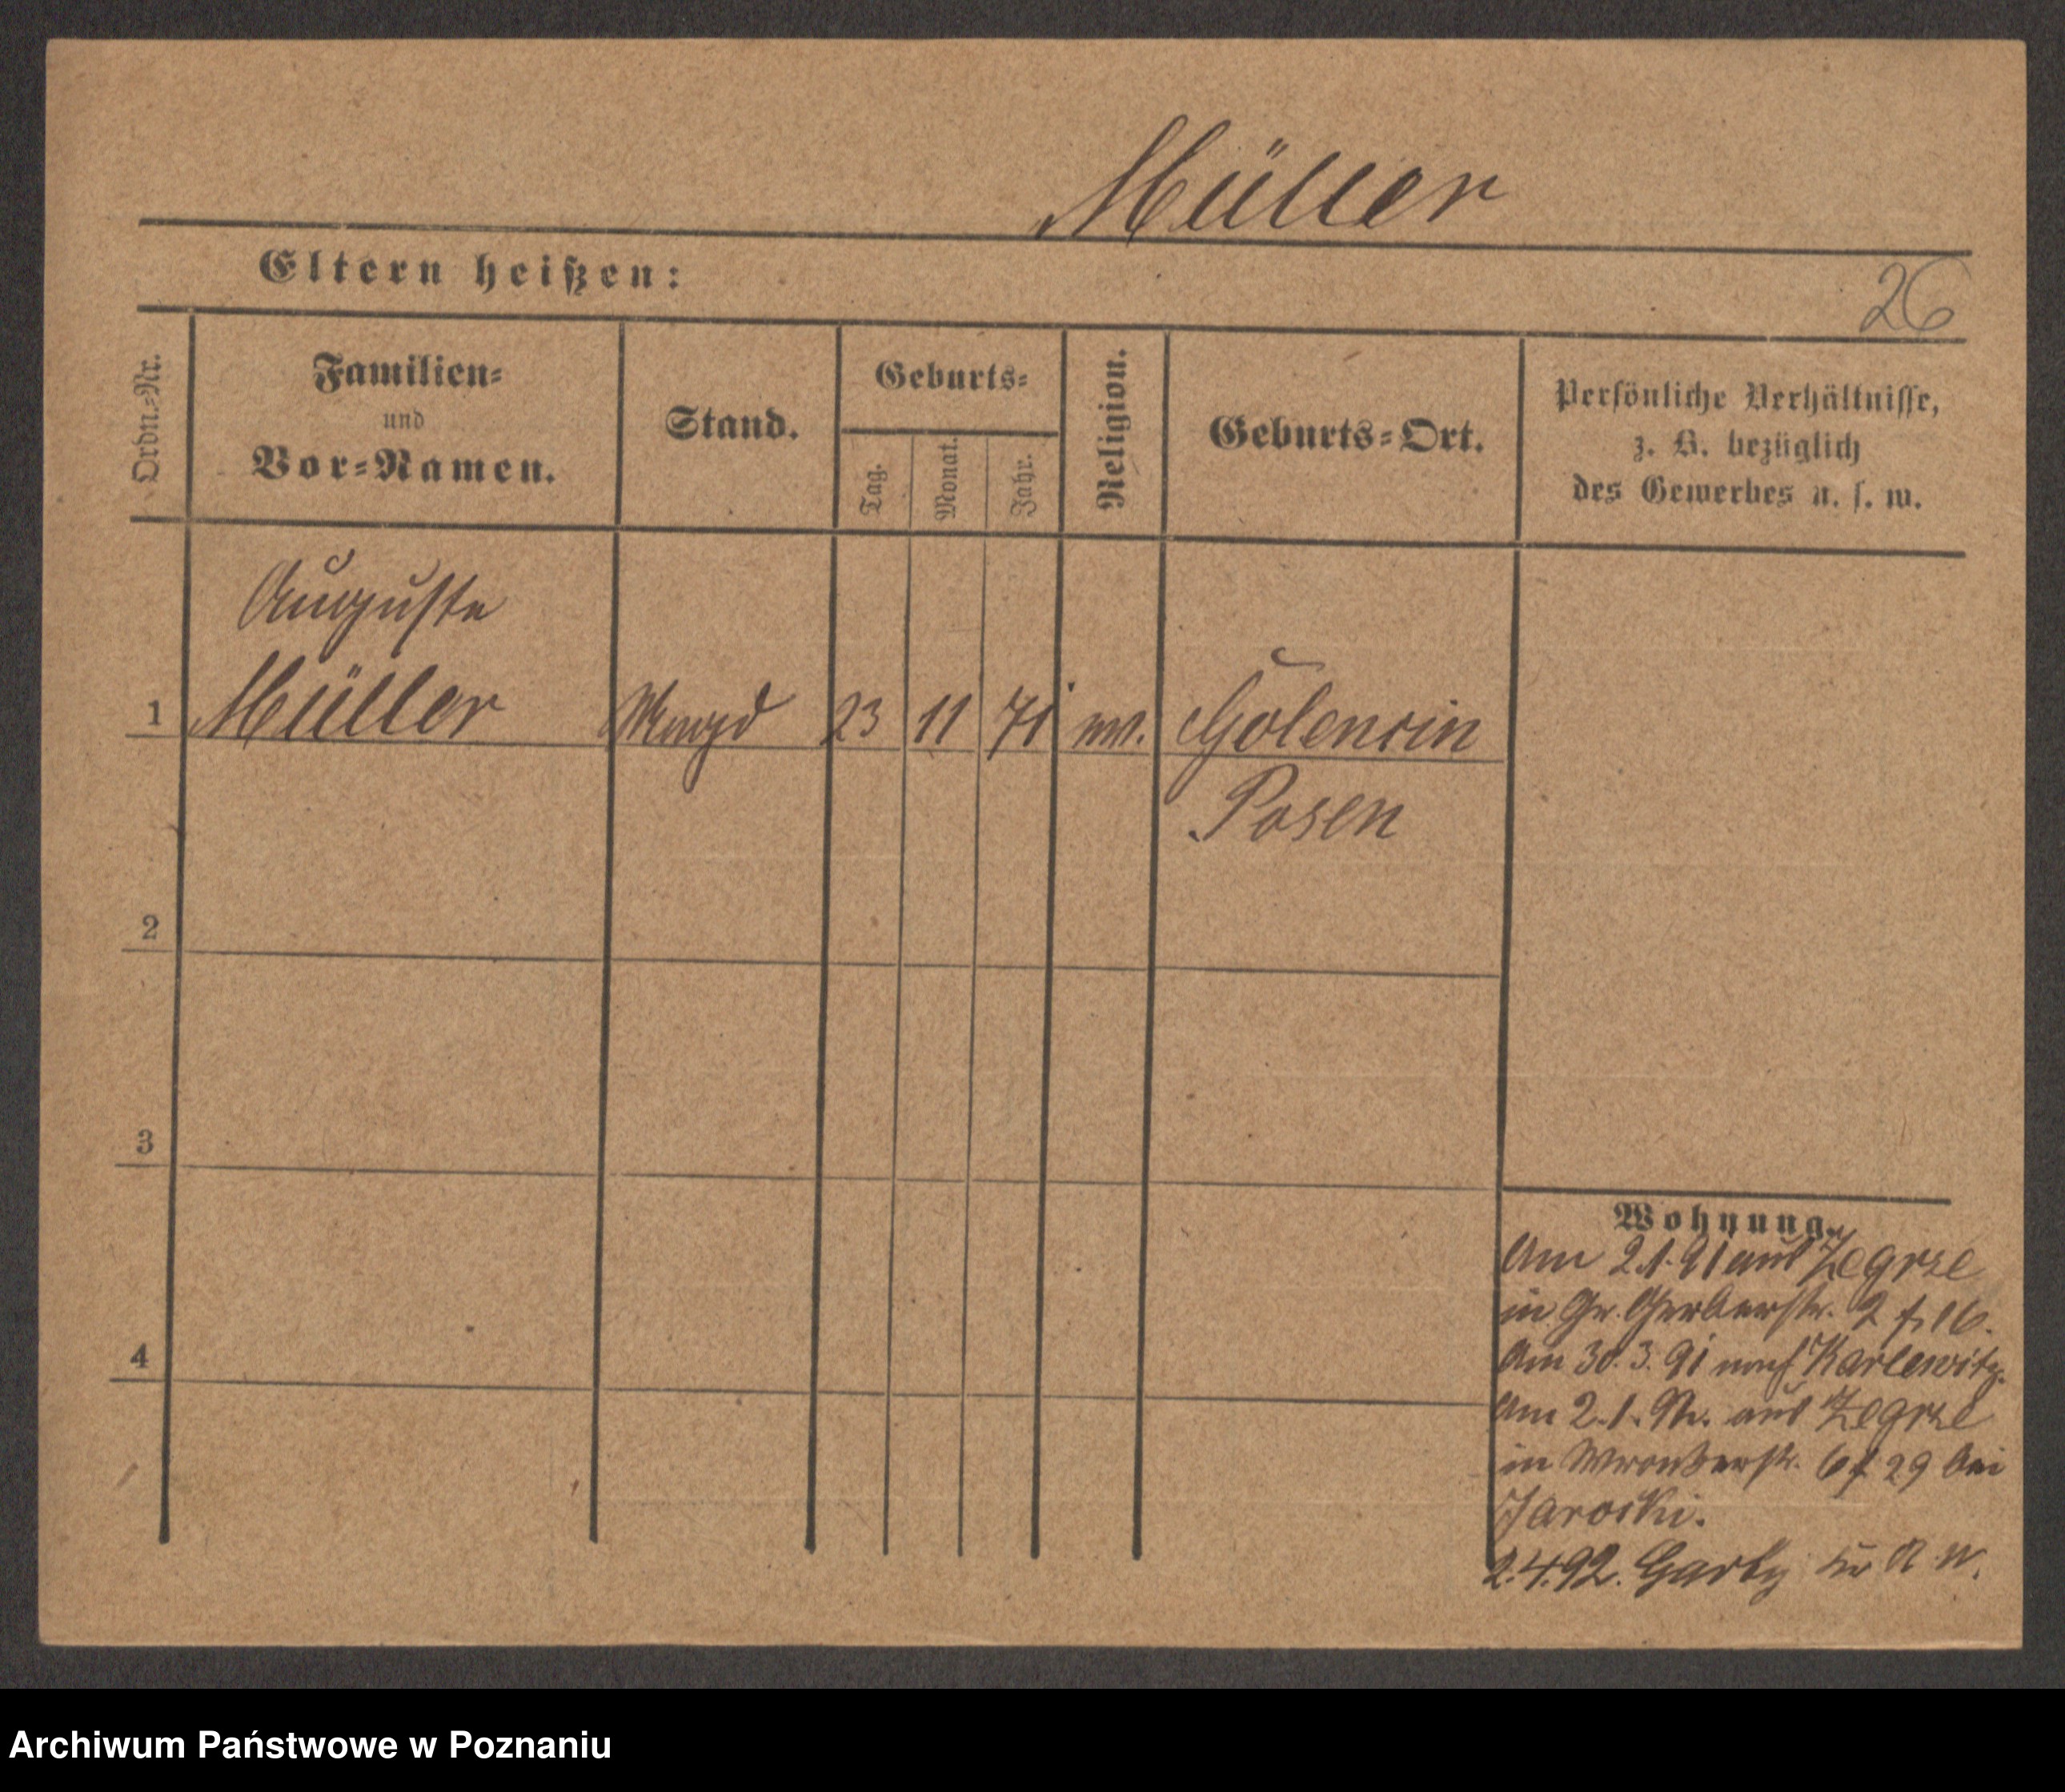 Müller
Eltern heißen:
26
Ordn.-Nr.
Familien-
und
Vor-Namen.
Stand.
Geburts-
Tag.
Monat.
Jahr.
Religion.
Geburts-Ort.
Persönliche Verhältnisse,
z. B. bezüglich
des Gewerbes u. s. w.
Auguste
1 Müller Magd 23 11 71 ev. Golencin
Posen
2
3
4
Wohnung.
Am 2.1.91 aus Zegrze
in Gr. Gerberstr. 2 f. 16.
Am 30.3.91 nach Karlewitz.
Am 2.1. aus Zegrze
in Wronkerstr. 6 f 29 bei
Jarocki.
2.4.92. Garby
Archiwum Państwowe w Poznaniu